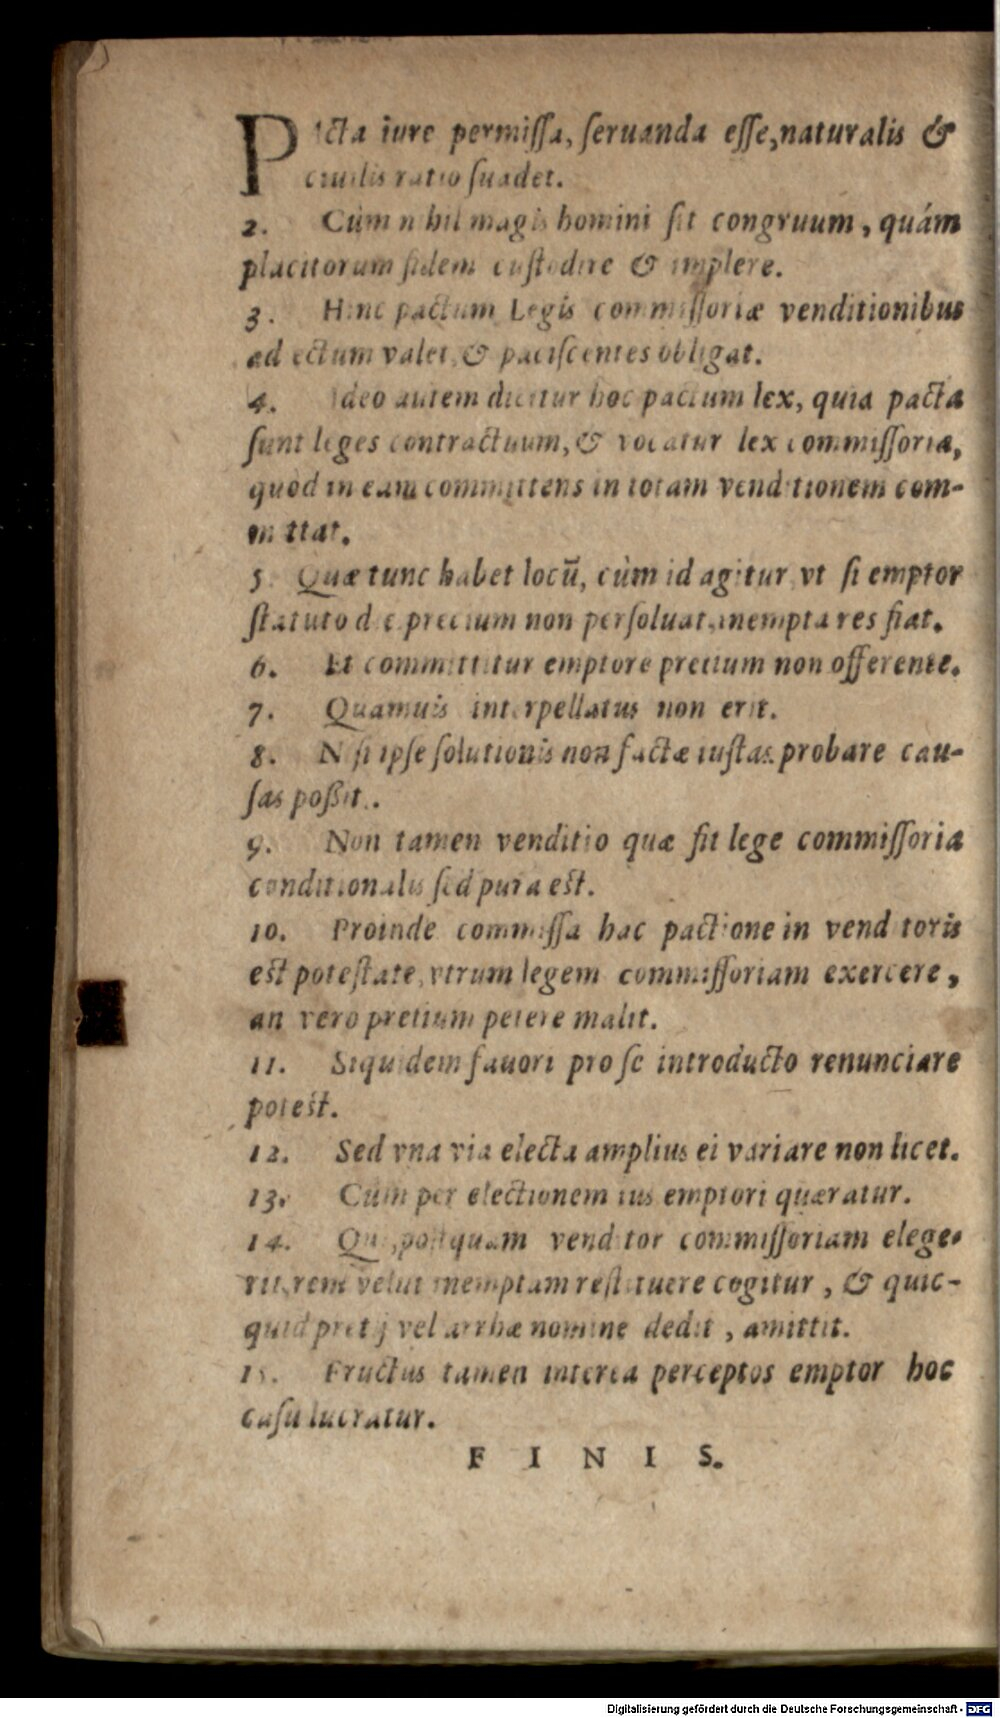 Pacta iure permissa, seruanda esse, naturalis &
ciuilis ratio suadet.
2. Cùm nihil magis homini sit congruum, quám
placitorum fidem custodire & implere.
3. Hinc pactum Legis commissoriæ venditionibus
adiectum valet, & paciscentes obligat.
4. Ideo autem dicitur hoc pactum lex, quia pacta
sunt leges contractuum, & vocatur lex commissoria,
quòd in eam committens in totam venditionem com-
mittat.
5. Quæ tunc habet locũ, cùm id agitur, vt si emptor
statuto die precium non persoluat, inempta res fiat.
6. Et committitur emptore pretium non offerente.
7. Quamuis interpellatus non erit.
8. Nisi ipse solutionis non factæ iustas probare cau-
sas poßit.
9. Non tamen venditio quæ fit lege commissoria
conditionalis sed pura est.
10. Proinde commissa hac pactione in venditoris
est potestate, vtrum legem commissoriam exercere,
an vero pretium petere malit.
11. Siquidem fauori pro se introducto renunciare
potest.
12. Sed vna via electa amplius ei variare non licet.
13. Cùm per electionem ius emptori quæratur.
14. Qui, postquam venditor commissoriam elege-
rit, rem velut inemptam restituere cogitur, & quic-
quid pretij vel arrhæ nomine dedit, amittit.
15. Fructus tamen interea perceptos emptor hoc
casu lucratur.
FINIS.
Digitalisierung gefördert durch die Deutsche Forschungsgemeinschaft - DFG